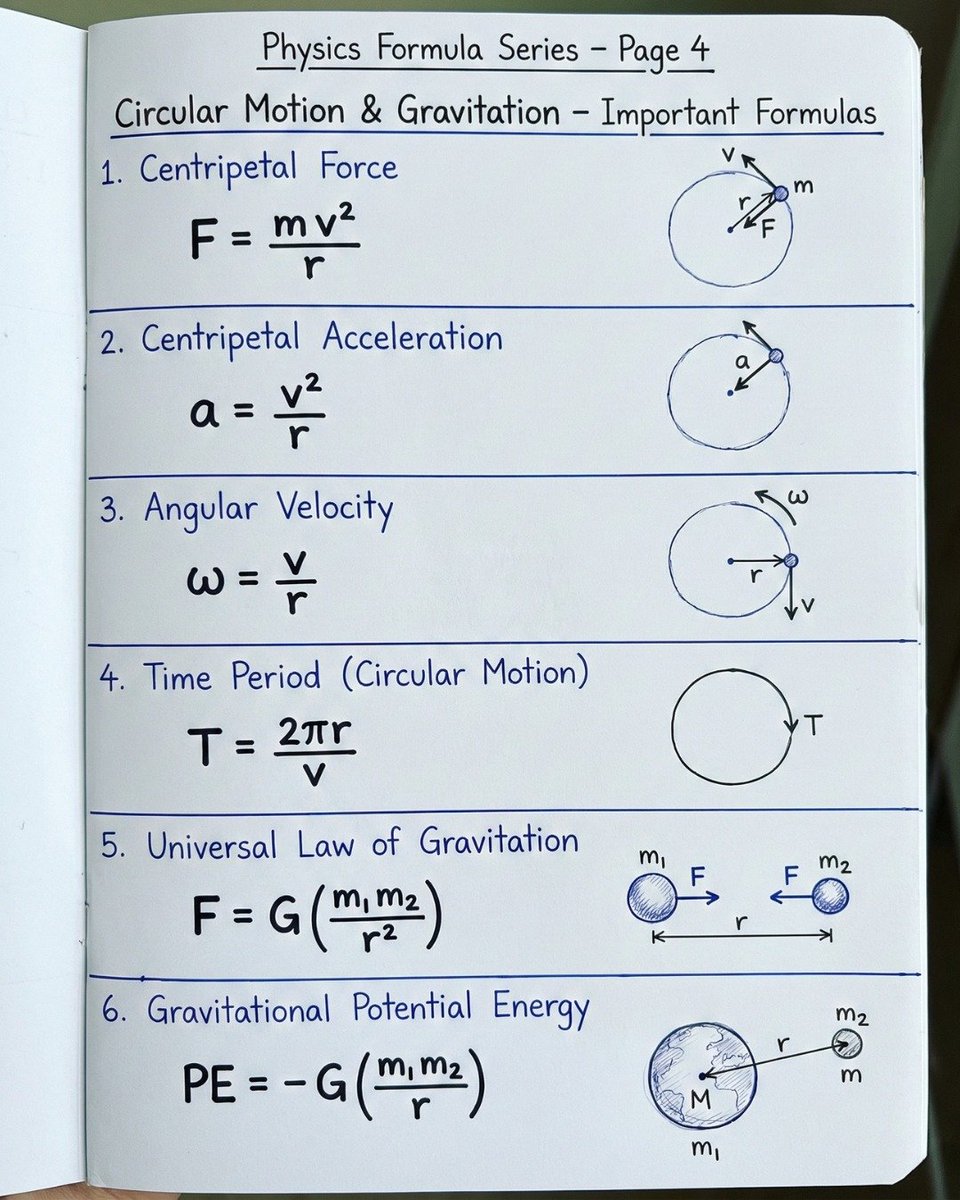 Physics Formula Series – Page 4
Circular Motion & Gravitation – Important Formulas
1. Centripetal Force
F = mv²/r
v
m
r
F
2. Centripetal Acceleration
a = v²/r
a
3. Angular Velocity
ω = v/r
ω
r
v
4. Time Period (Circular Motion)
T = 2πr/v
T
5. Universal Law of Gravitation
F = G(m₁m₂/r²)
m₁
F
F
m₂
r
6. Gravitational Potential Energy
PE = −G(m₁m₂/r)
m₂
r
m
M
m₁